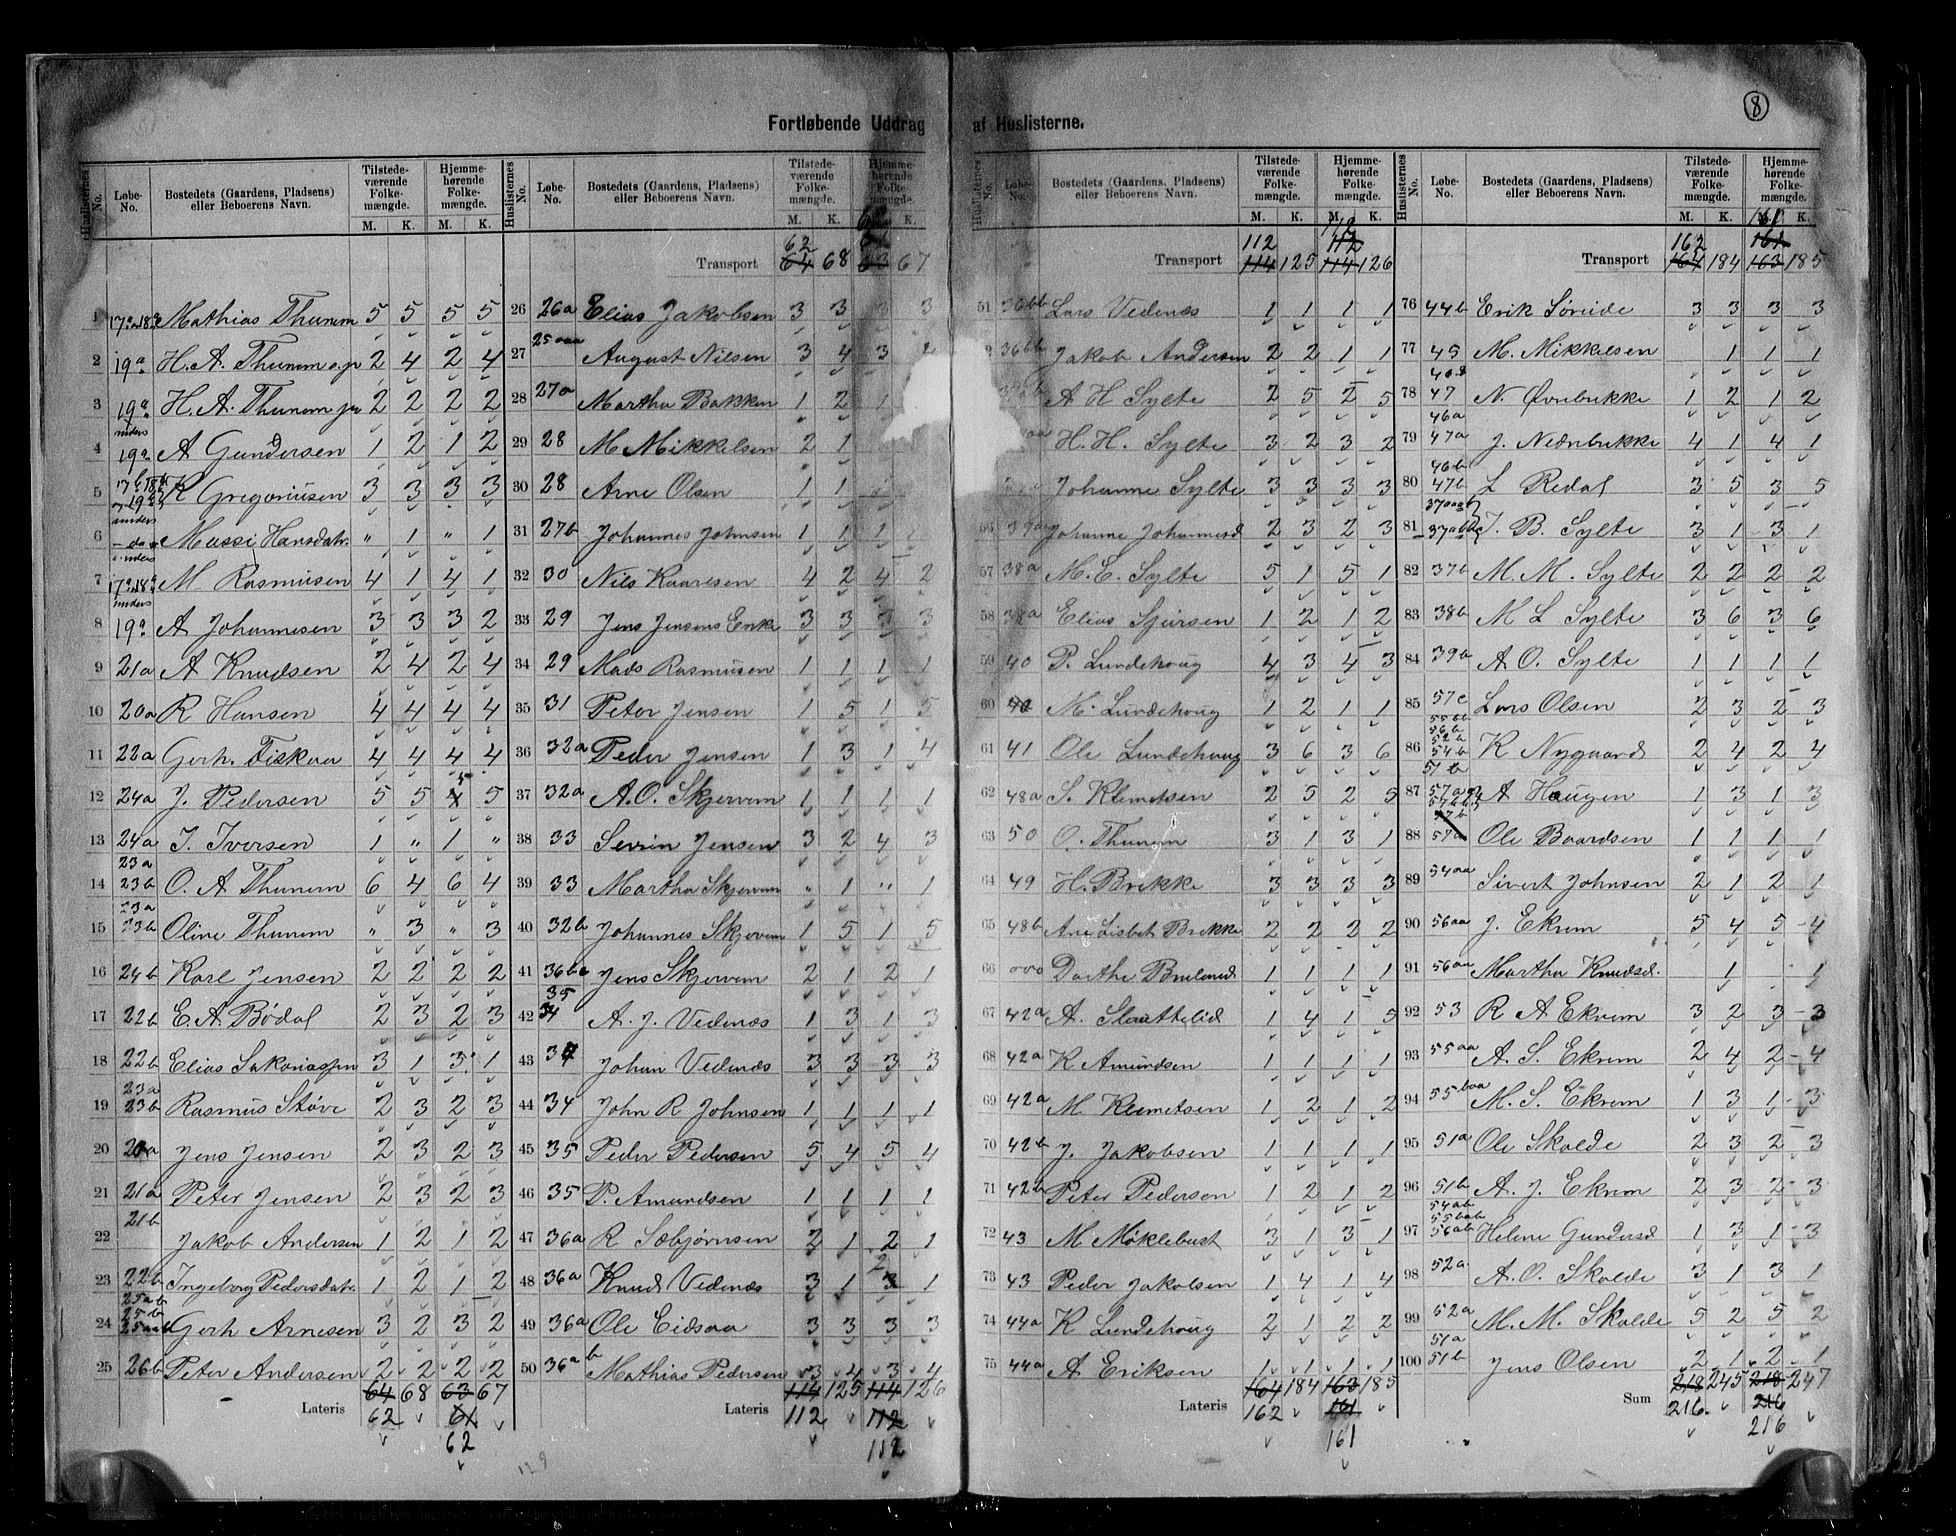 8
Fortløbende Uddrag af Huslisterne.
Huslisternes No. Løbe-No. Bostedets (Gaardens, Pladsens) eller Beboerens Navn. Tilstedeværende Folkemængde. M. K. Hjemmehørende Folkemængde. M. K.
1 17a 18a Mathias Thunem 5 5 5 5
2 19a H. A. Thunem s.p 2 4 2 4
3 19a H. A. Thunem jr 2 2 2 2
4 19a A Gundersen 1 2 1 2
5 R Gregoriusen 3 3 3 3
6 Massi Hansdatr. " 1 " 1
7 17a 18a M. Rasmusen 4 1 4 1
8 19a A Johannesen 3 3 3 2
9 21a A Knudsen 2 4 2 4
10 20a R Hansen 4 4 4 4
11 22a Gerh. Fisknes 4 4 4 4
12 24a J. Pedersen 5 5 5 5
13 24a J. Iversen 1 " 1 "
14 23a 23b O. A Thunem 6 4 6 4
15 23a 23b Oline Thunem " 3 " 3
16 24b Karl Jensen 2 2 2 2
17 22b E. A. Bødal 2 3 2 3
18 22b Elias Sakariassen 3 1 3 1
19 23a 23b Rasmus Støve 2 3 2 3
20 20a Jens Jensen 2 3 2 3
21 21a Peter Jensen 2 3 2 3
22 21b Jakob Andersen 1 2 1 2
23 22b Ingeborg Pedersdatr. 1 2 1 2
24 25ab 25b Gerh Arnesen 3 2 3 2
25 26b Peter Andersen 2 2 2 2
Lateris 64 68 63 67
62 61
62
Huslisternes No. Løbe-No. Bostedets (Gaardens, Pladsens) eller Beboerens Navn. Tilstedeværende Folkemængde. M. K. Hjemmehørende Folkemængde. M. K.
62
Transport 64 68 63 67
26 26a Elias Jakobsen 3 3 3 3
27 25aaa August Nilsen 3 4 3
28 27a Martha Bakken 1 2 1
29 28 M Mikkelsen 2 1
30 28 Arne Olsen 1 1
31 27b Johannes Johnsen 1 1 1
32 30 Nils Kaaresen 4 2 4 2
33 29 Jens Jensens Enke 3 3 3 3
34 29 Mads Rasmusen 1 1 1 1
35 31 Peter Jensen 1 5 1 5
36 32a Peder Jensen 1 3 1 4
37 32a A. O. Skjervem 1 1 1 1
38 33 Sevrin Jensen 3 2 4 3
39 33 Martha Skjervem " 1 " 1
40 32b Johannes Skjervem 1 5 1 5
41 36ba Jens Skjervem 2 1 2 1
42 35 34 A. J. Vedenæs 1 3 1 3
43 34 Johan Vedenæs 3 3 3 3
44 34 John R Johnsen 1 1 1 1
45 35 Peder Pedersen 5 4 5 4
46 35 P. Amundsen 1 1 1 1
47 36a R Sæbjørnsen 2 1 2 1
48 36a Knud Vedenæs 3 1 3 1
49 36a Ole Eidsaa 3 3 3 3
50 36ab Mathias Pedersen 3 4 3 4
Lateris 114 125 114 126
112 112
112
Huslisternes No. Løbe-No. Bostedets (Gaardens, Pladsens) eller Beboerens Navn. Tilstedeværende Folkemængde. M. K. Hjemmehørende Folkemængde. M. K.
112 112
Transport 114 125 114 126
51 36bb Lars Vedenæs 1 1 1 1
2 36bb Jakob Andersen 2 2 1 1
A H Sylte 2 5 2 5
H. H. Sylte 3 2 3 2
Johanne Sylte 3 3 3 3
56 Johanne Johannesd 2 3 2 3
57 38a M. E. Sylte 5 1 5 1
58 38a Elias Sjursen 1 2 1 2
59 40 P. Lundehoug 4 3 4 3
60 40 M. Lundehoug 1 2 1 1
61 41 Ole Lundehoug 3 6 3 6
62 48a S. Klemetsen 2 5 2 5
63 50 O. Thunem 3 1 3 1
64 49 H. Brekke 3 3 3 3
65 48b Ane Lisbet Brekke 2 2 2 2
66 Dorthe Bruland 1 1 1 1
67 42a A. Slaattelid 1 4 1 5
68 42a K Amundsen 1 1 1 1
69 42a M Klemetsen 1 2 1 2
70 42b J. Jakobsen 1 1 1 1
71 42b Peter Pedersen 1 2 1 2
72 43 M Møklebust 3 1 3 1
73 43 Peder Jakobsen 1 4 1 4
74 44a K Lundehoug 2 1 2 2
75 44a A Eriksen 1 1 1 1
Lateris 164 184 163 185
162 161
161
Huslisternes No. Løbe-No. Bostedets (Gaardens, Pladsens) eller Beboerens Navn. Tilstedeværende Folkemængde. M. K. Hjemmehørende Folkemængde. M. K.
161
162 161
Transport 164 184 163 185
76 44b Erik Søreide 3 3 3 3
77 45 M. Mikkelsen 1 1 1
78 47 N. Øvrebukke 1 2 1 2
79 46a 47a J. Nedrebukke 4 1 4 1
80 46b 47b L Redal 3 5 3 5
81 J. B. Sylte 3 1 3 1
82 37b M. M. Sylte 2 2 2 2
83 38b M L Sylte 3 6 3 6
84 39b A. O. Sylte 1 1 1 1
85 57c Lars Olsen 2 3 2 3
86 55bb 56b 52b 54b K Nygaard 2 4 2 4
87 51b A Haugen 1 3 1 3
88 57a Ole Baardsen 1 1 1 1
89 54aa Sivert Johnsen 2 1 2 1
90 56aa J. Ekrem 5 4 5 4
91 56aa Martha Knudsd. 1 1
92 53 R A Ekrem 3 2 3 3
93 55aa A. S. Ekrem 2 4 2 4
94 55baa M. S. Ekrem 1 3 1 3
95 51a Ole Skolde 2 3 2 3
96 51b A. J. Ekrem 2 3 2 3
97 54ab 55bab 56ab Helene Gundersd 1 3 1 3
98 52a A. O. Skolde 3 1 3 1
99 52a M. M. Skolde 5 2 5 2
100 51a 51b Jens Olsen 2 1 2 1
Sum 218 245 218 247
216 216
216
129